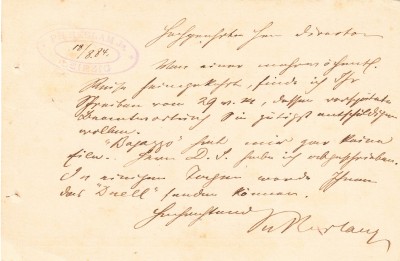 19/8.84.
Hochgeehrter Herr Director
Von einer mehrwöchentl.
Reise heimgekehrt, finde ich Ihr
Schreiben vom 29 v. M., dessen verspätete
Beantwortung Sie gütigst entschuldigen
wollen.
"Bajazzo" hat mir gar keine
Eile. Herrn D. J. habe ich abgeschrieben.
In einigen Tagen werde Ihnen
das "Duell" senden können.
Hochachtend